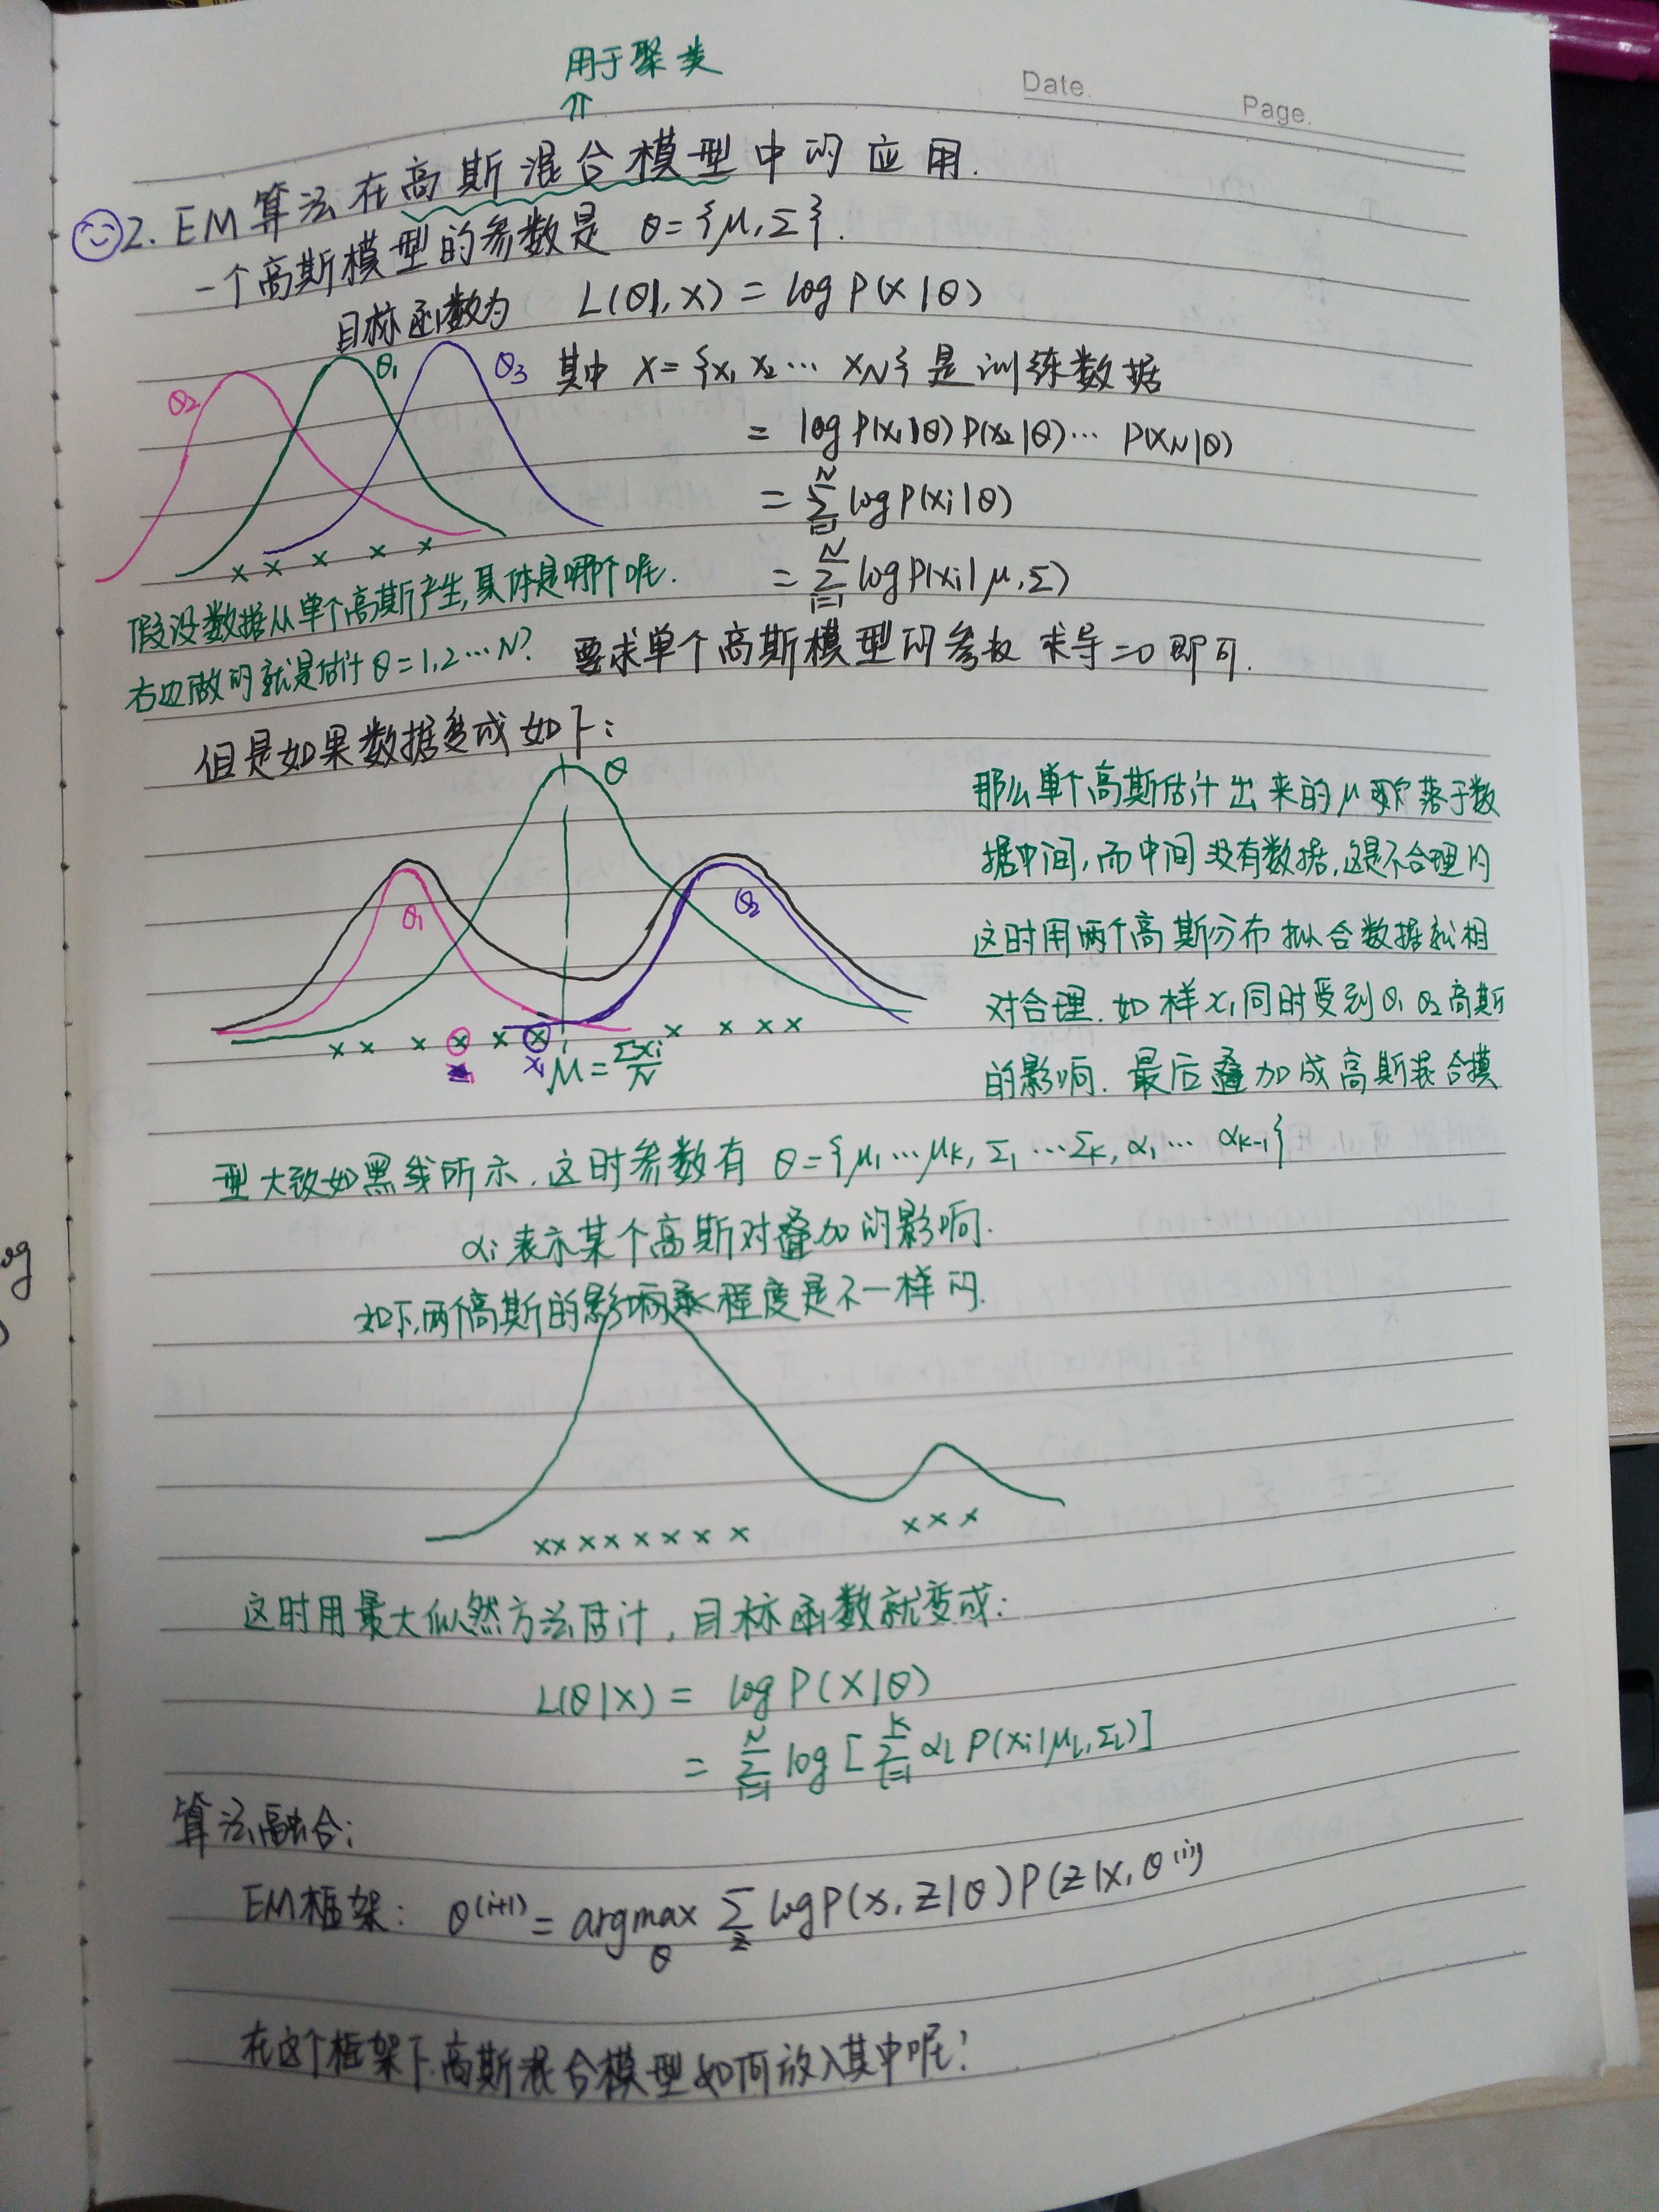 用于聚类
⇑
Date.
Page.
2. EM算法在高斯混合模型中的应用.
一个高斯模型的参数是 θ={μ,Σ}.
目标函数为 L(θ|,X) = log P(X|θ)
θ2 θ1 θ3 其中 X={x1 x2 … xN}是训练数据
= log P(x1|θ) P(x2|θ)… P(xN|θ)
= Σ_{i=1}^{N} log P(xi|θ)
× × × × ×
= Σ_{i=1}^{N} log P(xi|μ,Σ)
假设数据从单个高斯产生,具体是哪个呢.
右边做的就是估计θ=1,2…N?
要求单个高斯模型的参数 求导=0即可.
但是如果数据变成如下:
θ
θ1 θ2
× × × × × × × × × ×
x1 μ = Σxi/N
那么单个高斯估计出来的μ落于数
据中间,而中间没有数据,这是不合理的
这时用两个高斯分布拟合数据就相
对合理. 如样x1同时受到θ1 θ2高斯
的影响. 最后叠加成高斯混合模
型大致如黑线所示. 这时参数有 θ={μ1…μk, Σ1…Σk, α1…αk-1}
αi表示某个高斯对叠加的影响.
如下,两个高斯的影响程度是不一样的.
×× × × × × × × × × ×
这时用最大似然方法估计, 目标函数就变成:
L(θ|X) = log P(X|θ)
= Σ_{i=1}^{N} log [Σ_{l=1}^{k} αl P(xi|μl,Σl)]
算法融合:
EM框架: θ^(i+1) = argmax_θ Σ_z log P(x,z|θ)P(z|x,θ^(i))
在这个框架下,高斯混合模型如何放入其中呢?
og